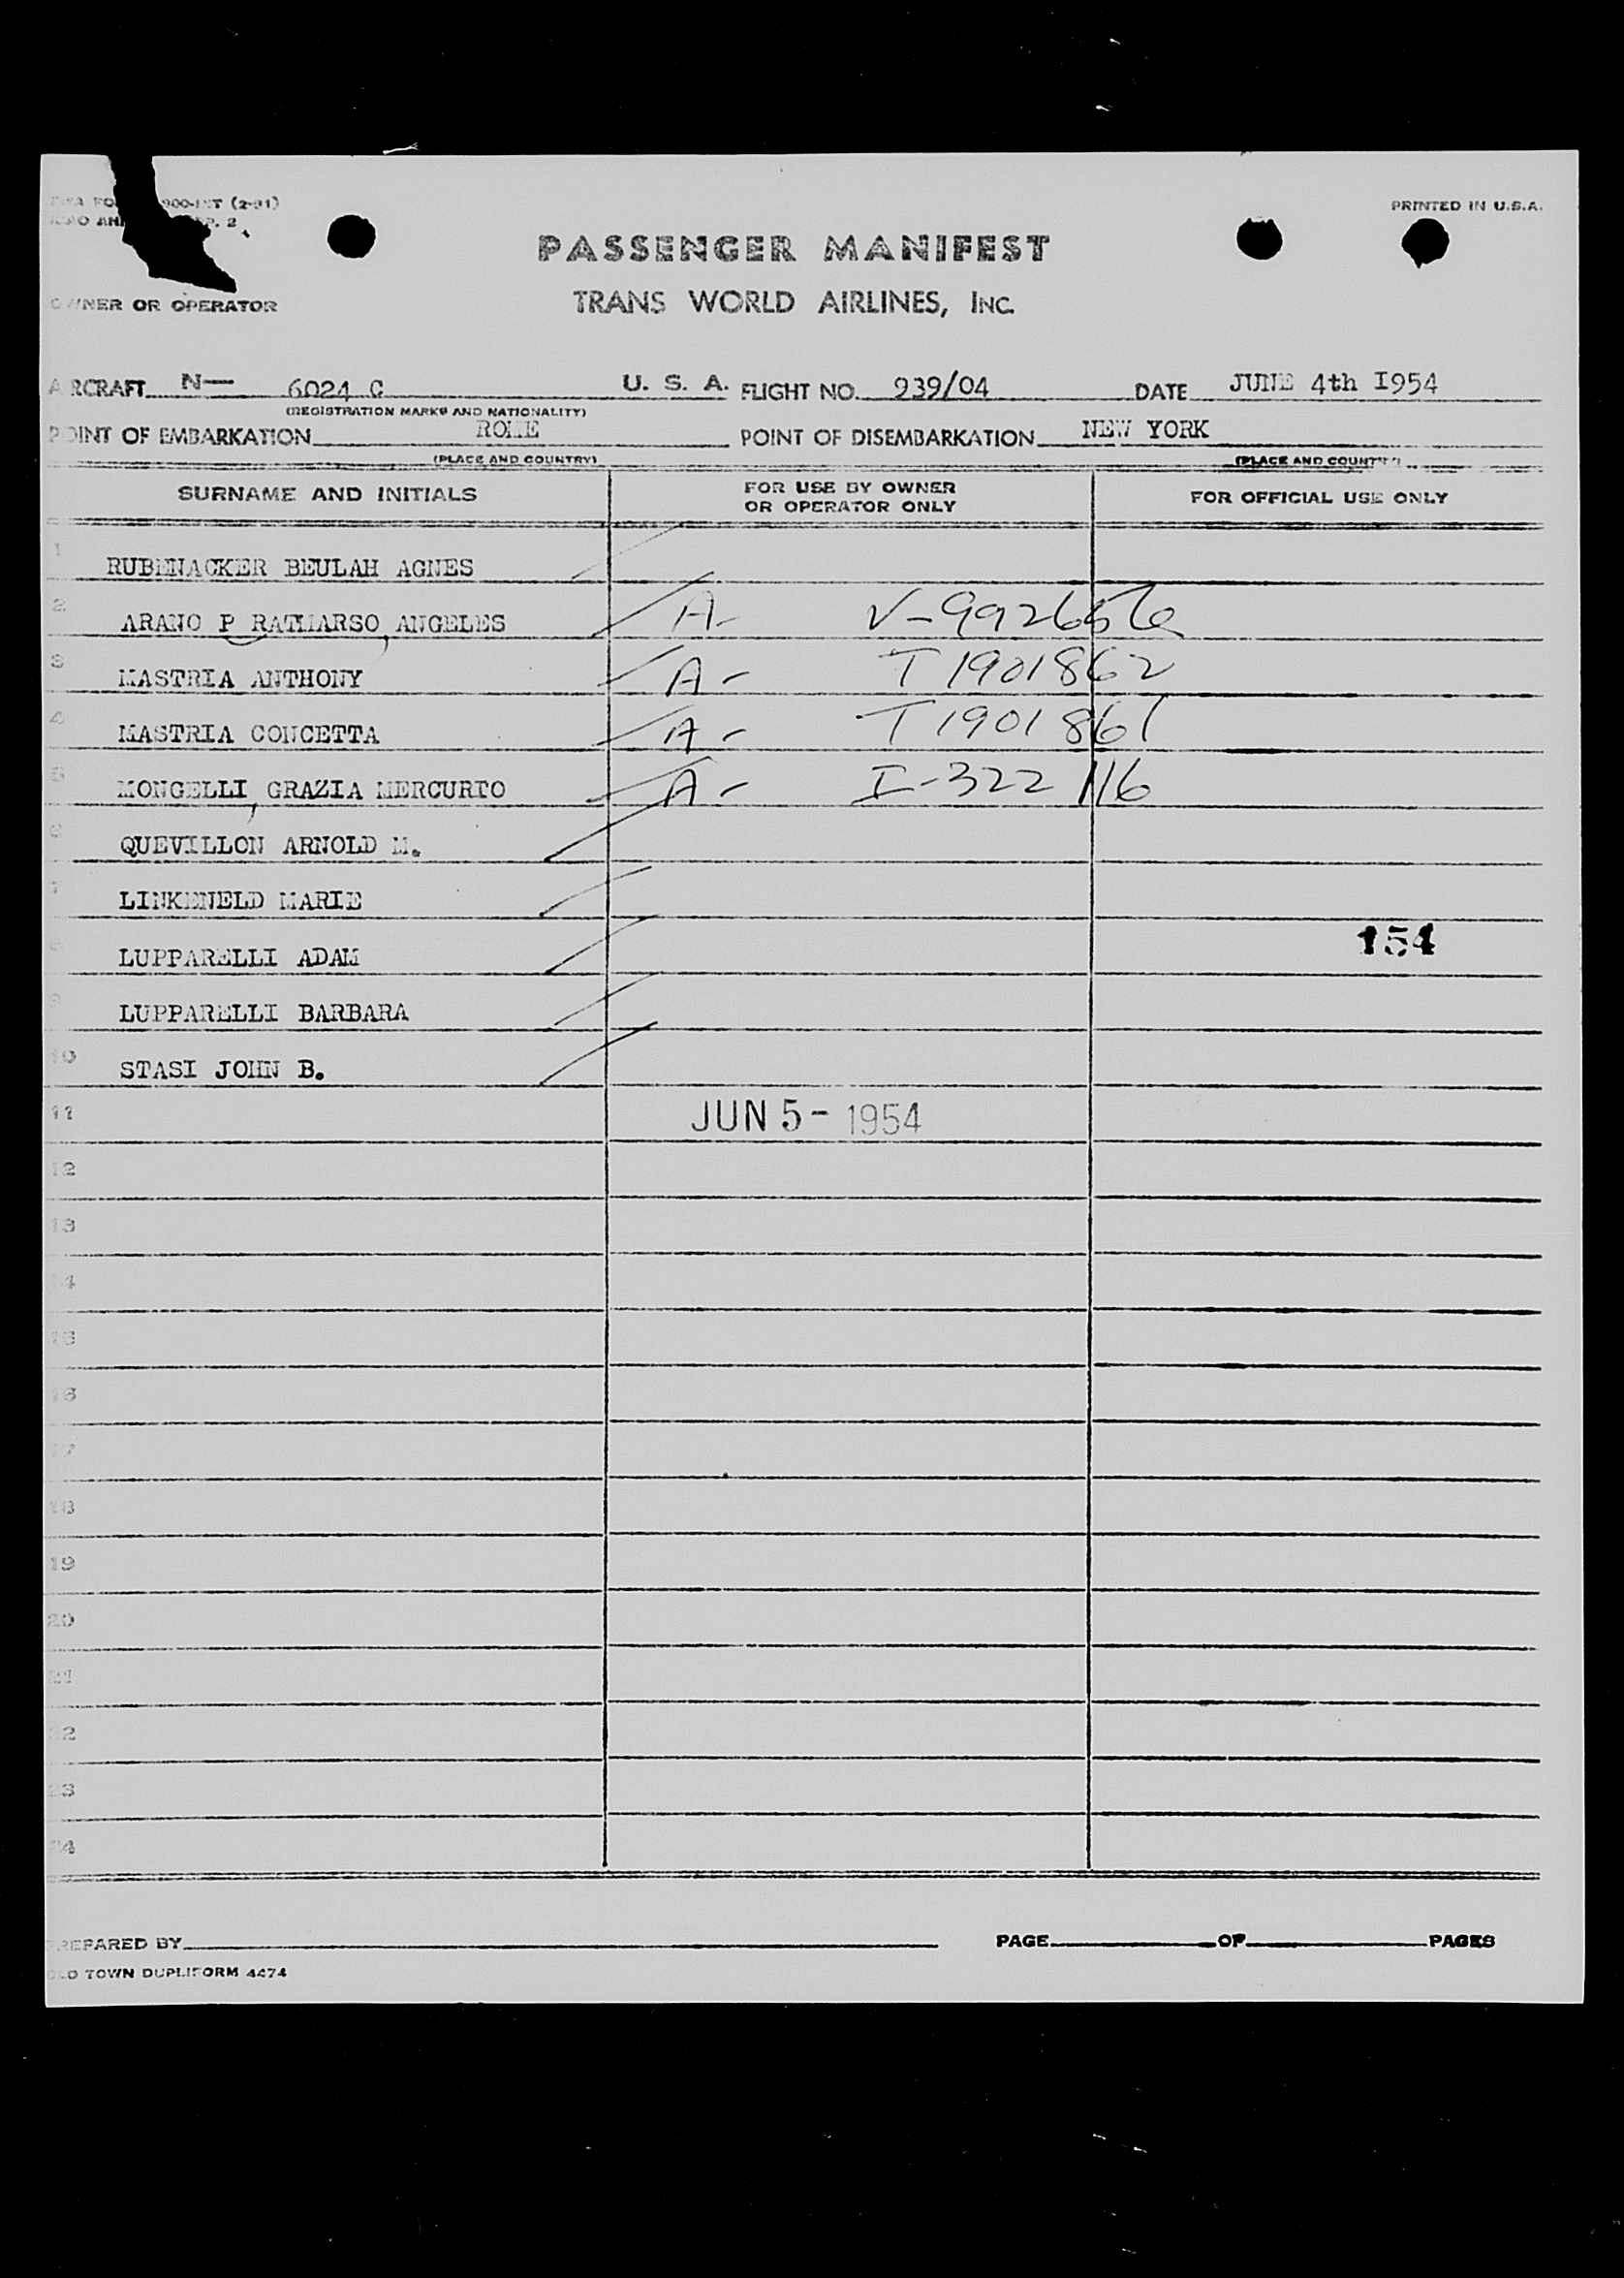 900-INT (2-51)
P. 2
PRINTED IN U.S.A.
PASSENGER MANIFEST
OWNER OR OPERATOR
TRANS WORLD AIRLINES, INC.
AIRCRAFT N— 6024 C U. S. A. FLIGHT NO. 939/04 DATE JUNE 4th I954
(REGISTRATION MARKS AND NATIONALITY)
POINT OF EMBARKATION ROME POINT OF DISEMBARKATION NEW YORK
(PLACE AND COUNTRY) (PLACE AND COUNTRY)
SURNAME AND INITIALS FOR USE BY OWNER OR OPERATOR ONLY FOR OFFICIAL USE ONLY
1 RUBENACKER BEULAH AGNES
2 ARANO P ANGELES A- V-9926656
3 MASTRIA ANTHONY A- T 1901862
4 MASTRIA CONCETTA A- T 1901861
5 MONGELLI, GRAZIA MERCURIO A- I-322 116
6 QUEVILLON ARNOLD M.
7 LINKENELD MARIE
8 LUPPARELLI ADAM 154
9 LUPPARELLI BARBARA
10 STASI JOHN B.
11 JUN 5 - 1954
12
13
14
15
16
17
18
19
20
21
22
23
24
PREPARED BY PAGE OF PAGES
OLD TOWN DUPLIFORM 4474